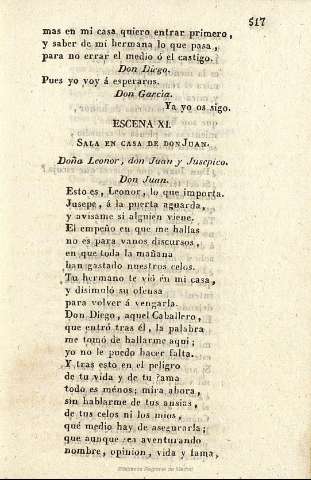 517
mas en mi casa quiero entrar primero,
y saber de mi hermana lo que pasa,
para no errar el medio ó el castigo.
Don Diego.
Pues yo voy á esperaros.
Don Garcia.
Ya yo os sigo.
ESCENA XI.
SALA EN CASA DE DON JUAN.
Doña Leonor, don Juan y Jusepico.
Don Juan.
Esto es, Leonor, lo que importa.
Jusepe, á la puerta aguarda,
y avisame si alguien viene.
El empeño en que me hallas
no es para vanos discursos,
en que toda la mañana
han gastado nuestros celos.
Tu hermano te vió en mi casa,
y disimuló su ofensa
para volver á vengarla.
Don Diego, aquel Caballero,
que entró tras él, la palabra
me tomó de hallarme aqui;
yo no le puedo hacer falta.
Y tras esto en el peligro
de tu vida y de tu fama
todo es ménos; mira ahora,
sin hablarme de tus ansias,
de tus celos ni los mios,
qué medio hay de asegurarla;
que aunque sea aventurando
nombre, opinion, vida y fama,
Biblioteca Regional de Madrid